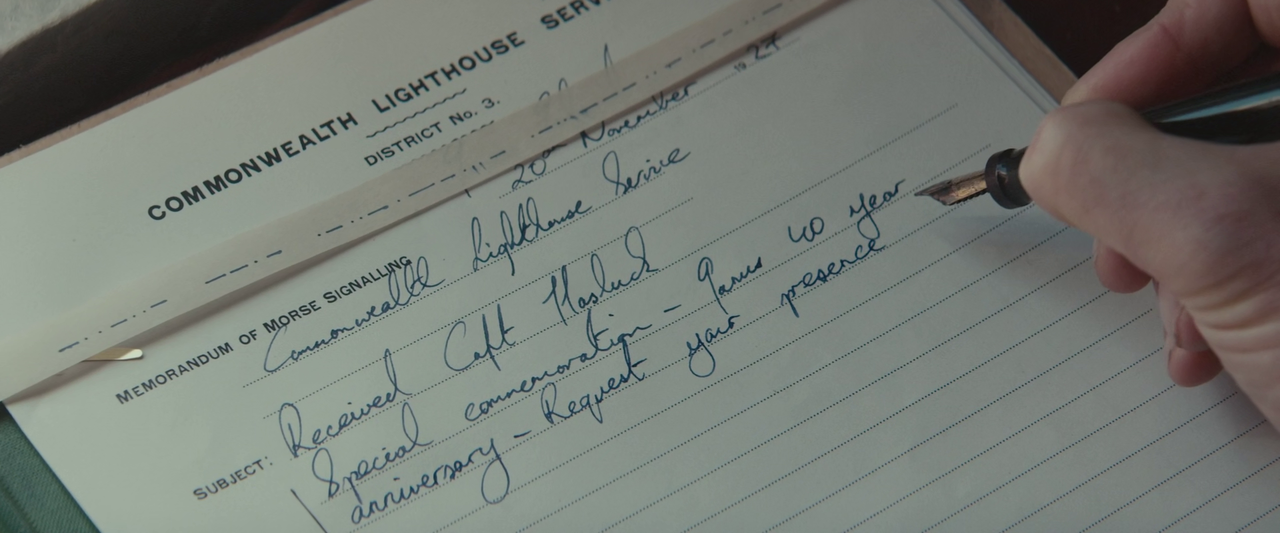 COMMONWEALTH LIGHTHOUSE SERV
DISTRICT No. 3.
20th November 1924
MEMORANDUM OF MORSE SIGNALLING
Commonwealth Lighthouse Service
SUBJECT: Received Capt Hasluck
Special commemoration – Janus 40 year
anniversary – Request your presence